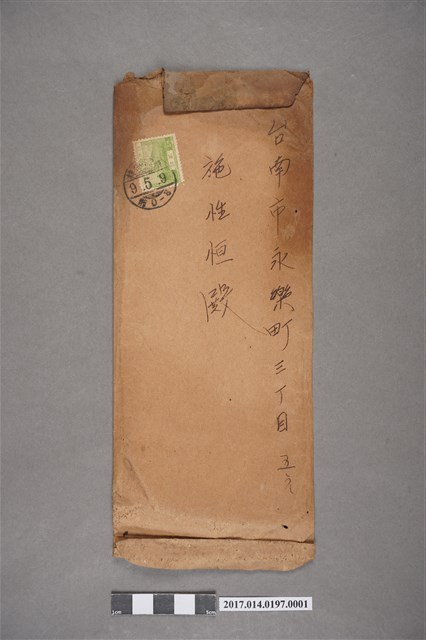 台南市永樂町三丁目五
施性恒殿
9.5.9
2017.014.0197.0001
1cm
5cm